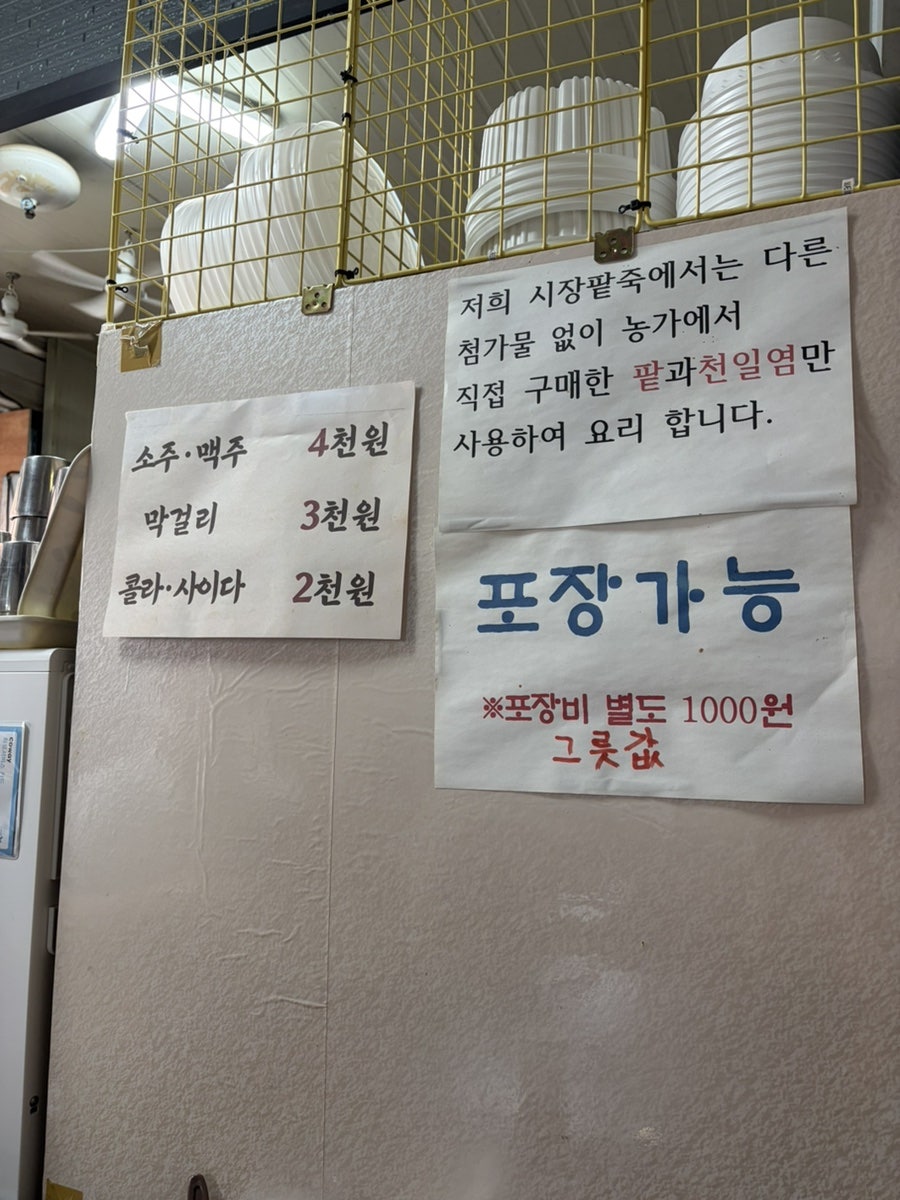 저희 시장팥죽에서는 다른
첨가물 없이 농가에서
직접 구매한 팥과천일염만
사용하여 요리 합니다.
소주·맥주 4천원
막걸리 3천원
콜라·사이다 2천원
포장가능
※포장비 별도 1000원
그릇값
coway